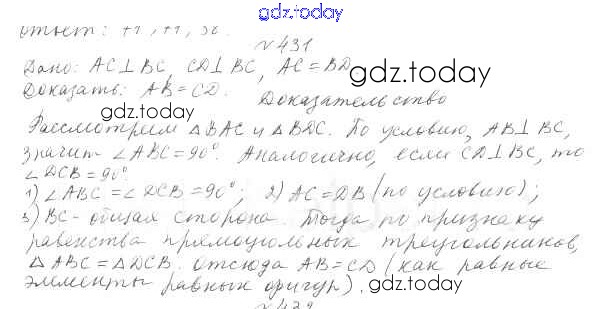 gdz.today
ответ:
№431
Дано: AC⊥BC, CD⊥BC, AC=BD
gdz.today
Доказать: AB=CD.
Доказательство
gdz.today
Рассмотрим △BAC и △BDC. По условию, AB⊥BC,
значит ∠ABC=90°. Аналогично, если CD⊥BC, то
∠DCB=90°
1) ∠ABC=∠DCB=90°; 2) AC=DB (по условию);
3) BC-общая сторона. Тогда по признаку
равенства прямоугольных треугольников,
△ABC=△DCB. Отсюда AB=CD (как равные
элементы равных фигур).
gdz.today